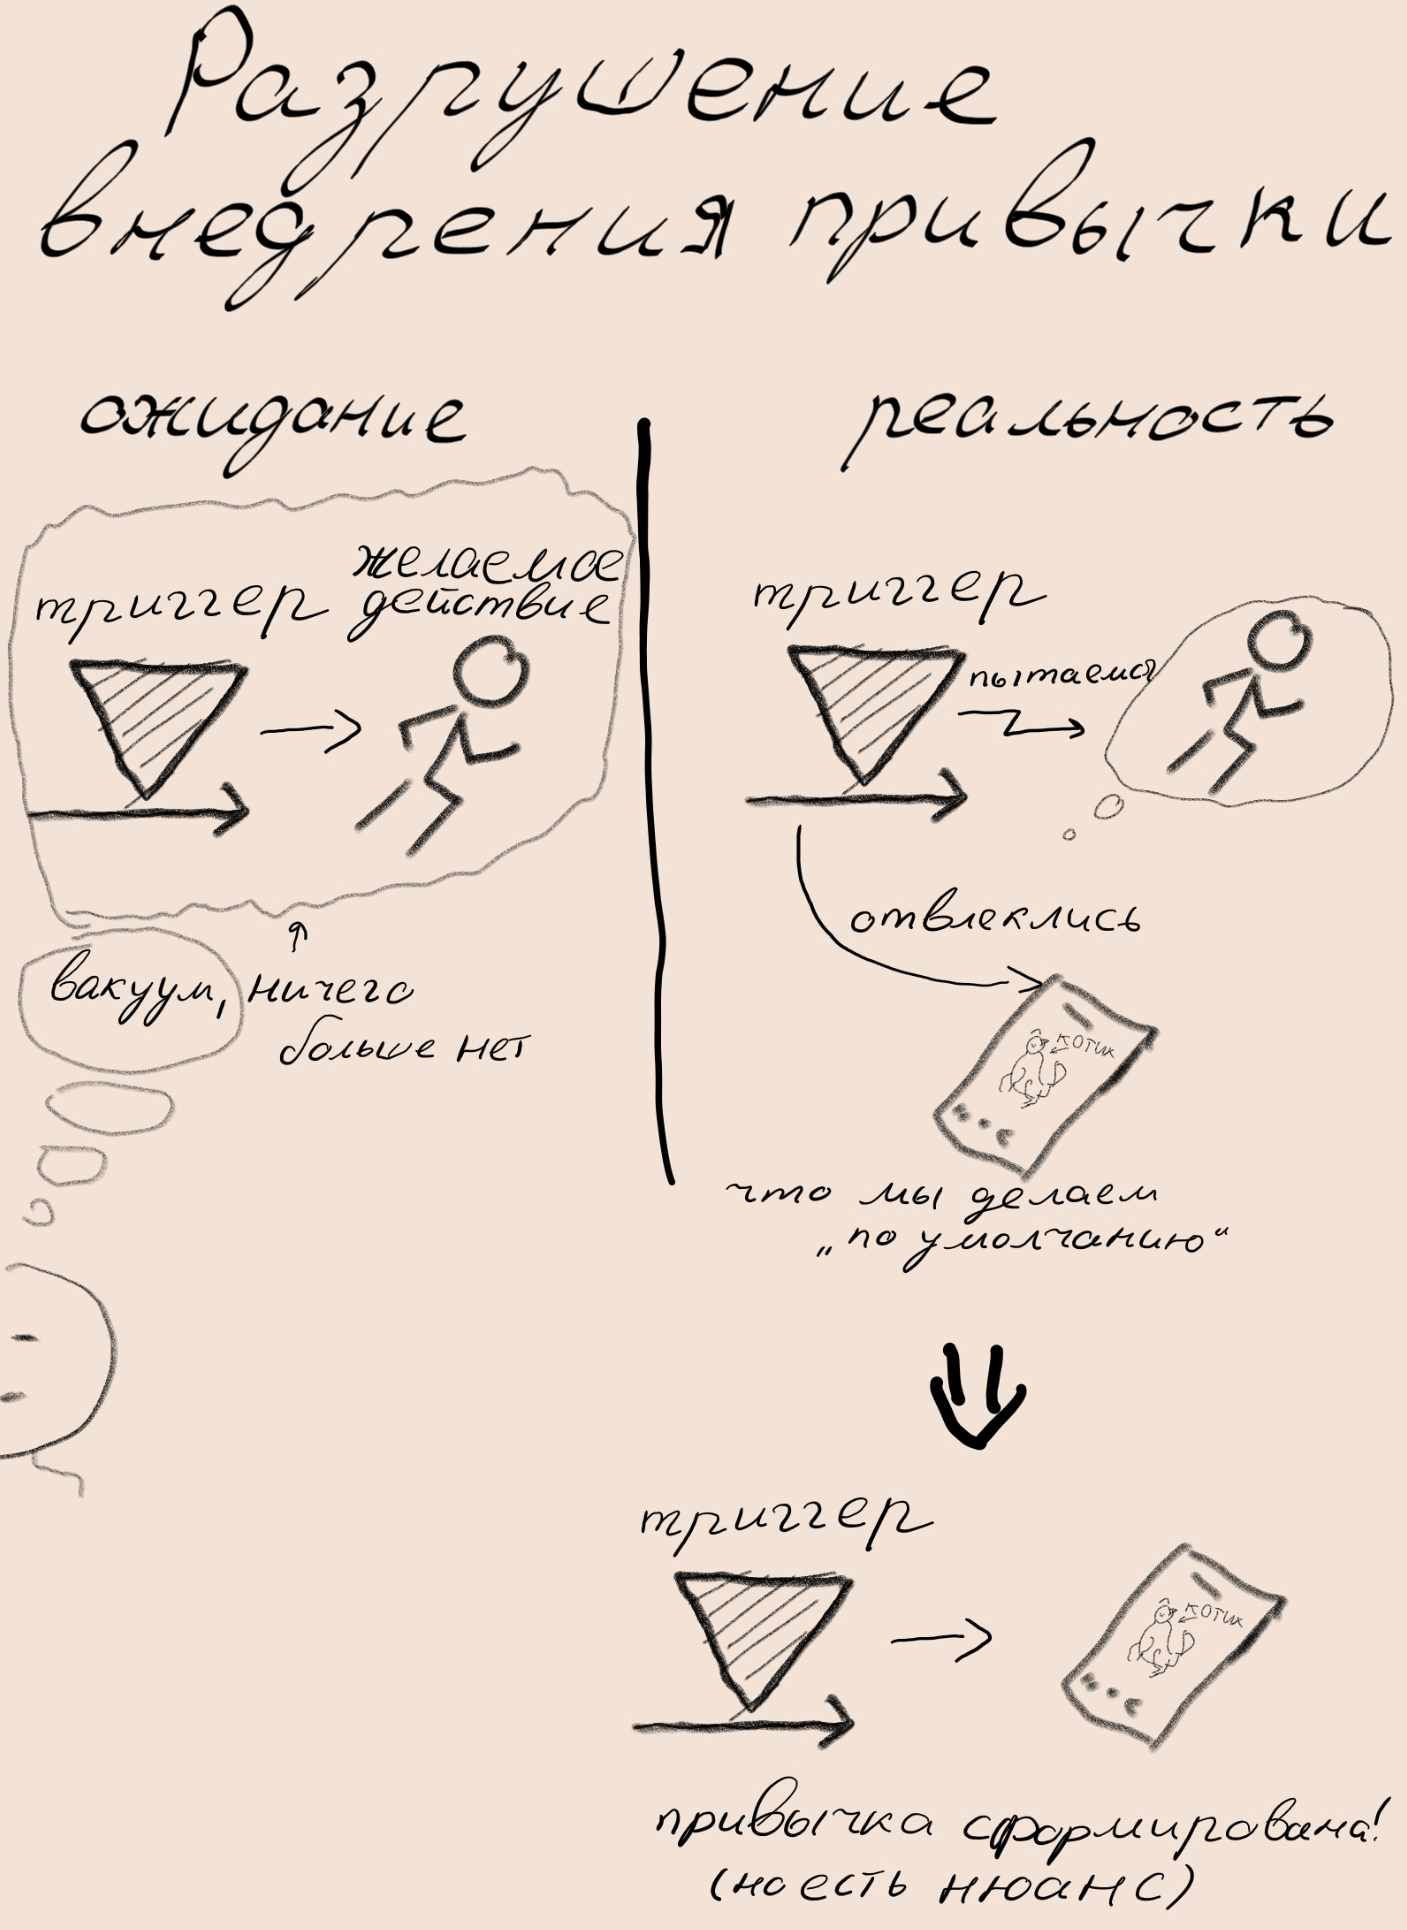 Разрушение
внедрения привычки
ожидание
триггер
желаемое
действие
вакуум, ничего
больше нет
реальность
триггер
пытаемся
отвлеклись
котик
что мы делаем
„по умолчанию“
триггер
котик
привычка сформирована!
(но есть нюанс)